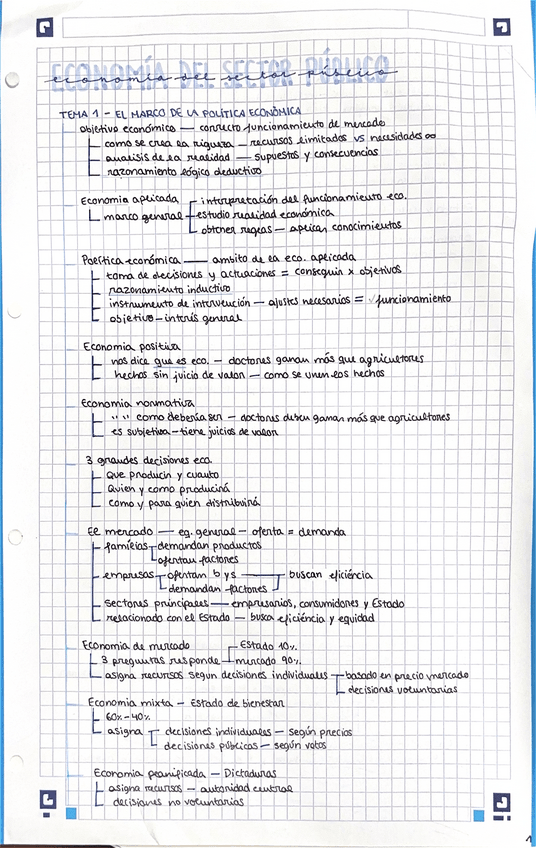 ECONOMÍA DEL SECTOR PÚBLICO
economía del sector público
TEMA 1 - EL MARCO DE LA POLÍTICA ECONÓMICA
Objetivo económico — correcto funcionamiento de mercado
como se crea la riqueza — recursos limitados vs necesidades ∞
analisis de la realidad — supuestos y consecuencias
razonamiento lógico deductivo
Economia aplicada interpretación del funcionamiento eco.
marco general estudio realidad económica
obtener reglas — aplicar conocimientos
Política económica — ambito de la eco. aplicada
toma de decisiones y actuaciones = conseguir x objetivos
razonamiento inductivo
instrumento de intervención — ajustes necesarios = √ funcionamiento
objetivo - interés general
Economia positiva
nos dice que es eco. — doctores ganan más que agricultores
hechos sin juicio de valor — como se unen los hechos
Economia normativa
" " como debería ser — doctores deben ganar más que agricultores
es subjetiva - tiene juicios de valor
3 grandes decisiones eco.
Que producir y cuanto
Quien y como producirá
Como y para quien distribuirá
El mercado — eg. general — oferta = demanda
familias demandan productos
ofertan factores
empresas ofertan b y s buscan eficiéncia
demandan factores
Sectores principales — empresarios, consumidores y Estado
relacionado con el Estado — busca eficiéncia y equidad
Economia de mercado Estado 10%
3 preguntas responde mercado 90%
asigna recursos segun decisiones individuales basado en precio mercado
decisiones voluntarias
Economia mixta - Estado de bienestar
60% - 40%
asigna decisiones individuales — según precios
decisiones públicas — según votos
Economia planificada — Dictaduras
asigna recursos — autoridad central
decisiones no voluntarias
1